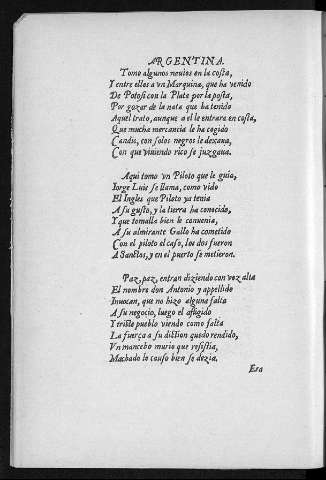 ARGENTINA.
Tomo algunos nauios en la costa,
Y entre ellos a vn Marquina, que ha venido
De Potosi con la Plata por la posta,
Por gozar de la nata que ha tenido
Aquel trato, aunque a el le entrara en costa,
Que mucha mercancia le ha cogido
Candis, con solos negros le dexaua,
Con que viuiendo rico se juzgaua.
Aqui tomo vn Piloto que le guio,
Iorge Luis se llama, como vido
El Ingles que Piloto ya tenia
A su gusto, y la tierra ha conocido,
Y que tomalla bien le conuenia,
A su almirante Gallo ha cometido
Con el piloto el caso, los dos fueron
A Sanctos, y en el puerto se metieron.
Paz, paz, entran diziendo con voz alta
El nombre don Antonio y appellido
Inuocan, que no hizo alguna falta
A su negocio, luego el afligido
Y triste pueblo viendo como falta
La fuerça a su diction quedo rendido,
Vn mancebo murio que resistia,
Machado lo causo bien se dezia.
Esta